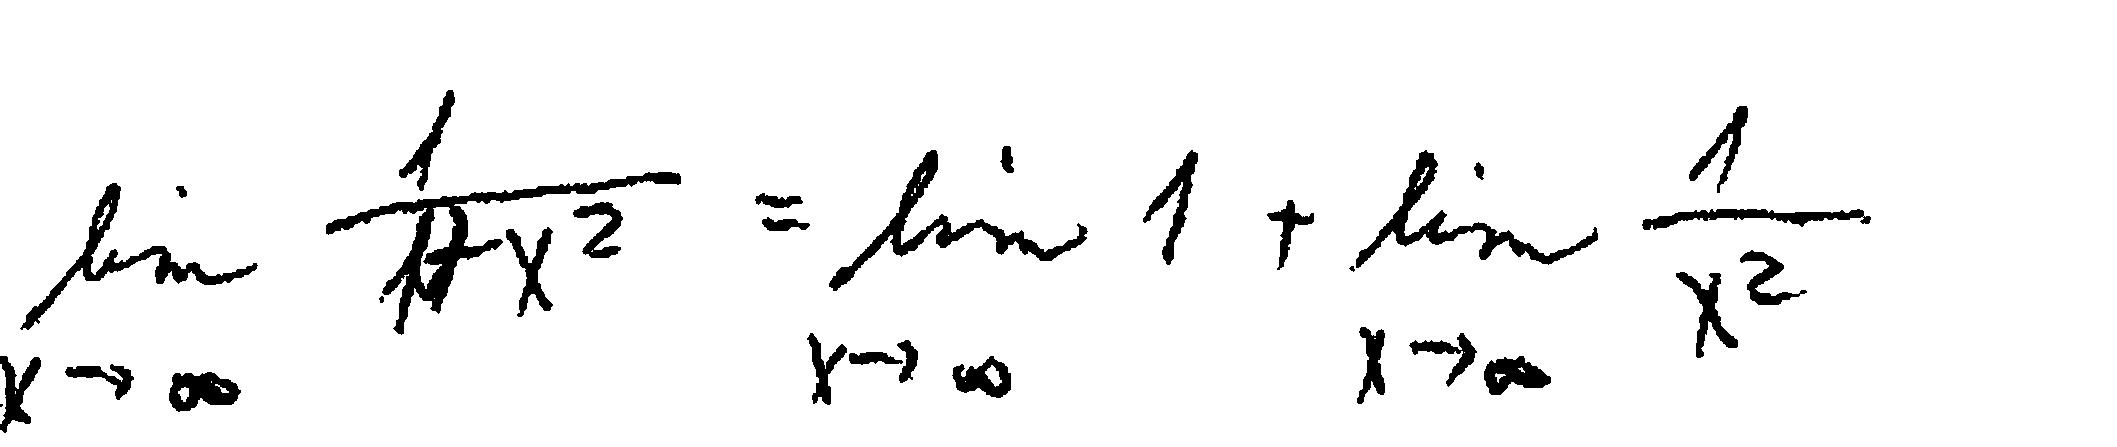 lim x→∞ 1/(1+x²) = lim x→∞ 1 + lim x→∞ 1/x²